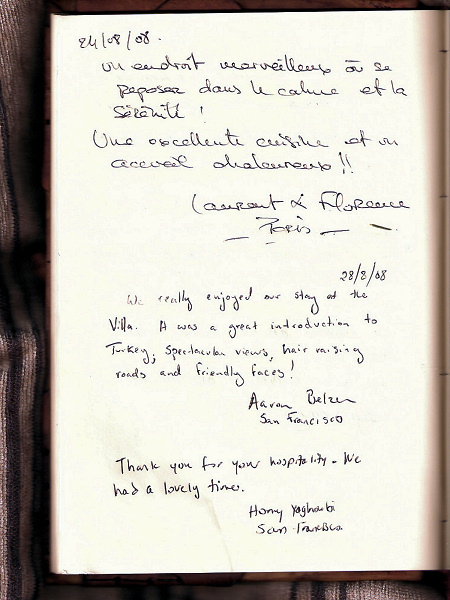 24/08/08.
un endroit merveilleux où se
reposer dans le calme et la
sérénité !
Une excellente cuisine et un
accueil chaleureux !!
Laurent & Florence
— Paris —
28/8/08
We really enjoyed our stay at the
Villa. It was a great introduction to
Turkey; spectacular views, hair raising
roads and friendly faces!
Aaron Belzer
San Francisco
Thank you for your hospitality. We
had a lovely time.
San Francisco